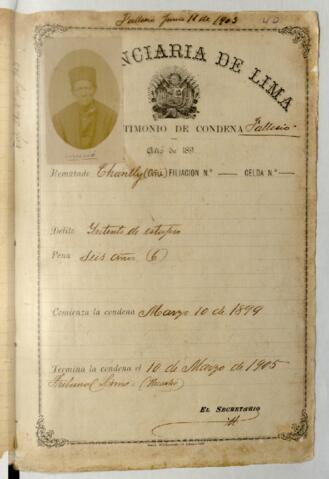 Falleció Junio 18 de 1903
40
NCIARIA DE LIMA
TIMONIO DE CONDENA Falleció
Año de 189
Rematado Chantly (Asia) FILIACION N.º CELDA N.º
Delito Intento de estupro
Pena Seis años (6)
Comienza la condena Marzo 10 de 1899
Termina la condena el 10 de Marzo de 1905
Tribunal Lima
EL SECRETARIO